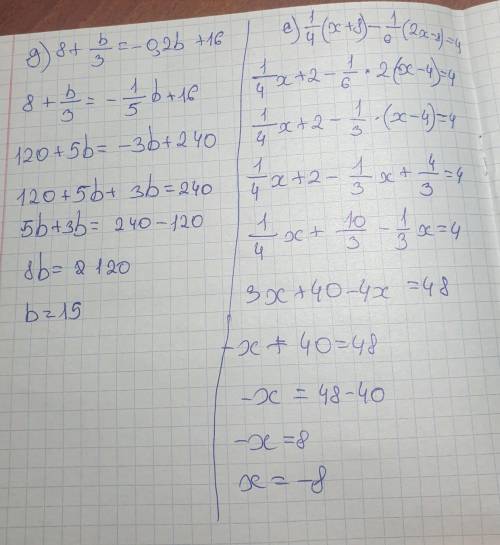 д) 8 + b/3 = -0,2b + 16
8 + b/3 = - 1/5 b + 16
120 + 5b = -3b + 240
120 + 5b + 3b = 240
5b + 3b = 240 - 120
8b = 120
b = 15
е) 1/4 (x + 8) - 1/6 (2x - 8) = 4
1/4 x + 2 - 1/6 · 2 (x - 4) = 4
1/4 x + 2 - 1/3 · (x - 4) = 4
1/4 x + 2 - 1/3 x + 4/3 = 4
1/4 x + 10/3 - 1/3 x = 4
3x + 40 - 4x = 48
-x + 40 = 48
-x = 48 - 40
-x = 8
x = -8